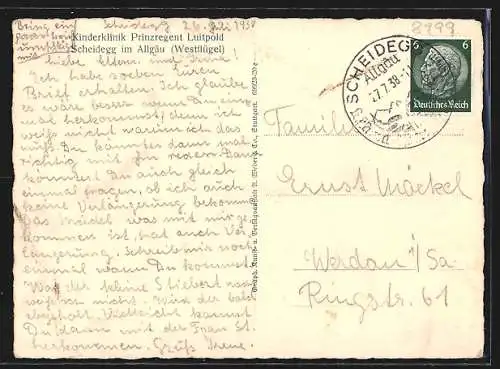 Bring ein
paar
mit
Scheidegg 26. Juli 1938
Kinderklinik Prinzregent Luitpold
Scheidegg im Allgäu (Westflügel)
Liebe Eltern und Irma!
Ich habe soeben Euren
Brief erhalten. Ich glaube
es wäre besser wenn Du ein-
mal herkommst, denn ich
weiß nicht warum ich das
muß. Du könntest dann mal
richtig mit ihm reden. Dann
könntest Du auch gleich
einmal fragen, ob ich auch
keine Verlängerung bekomme.
Das Friedel was mit mir ge-
kommen ist, hat auch Ver-
längerung. Schreib mir noch
einmal wann Du kommst.
Was der kleine Stiebert
weiß ich nicht. Wird der bald
abgeholt. Vielleicht kannst
Du dann mit der Frau St.
herkommen. Gruß Irene.
8199
SCHEIDEGG
Allgäu
27.7.38
6 6
Deutsches Reich
Familie
Ernst Mäckel
Werdau/Sa.
Ringstr. 61